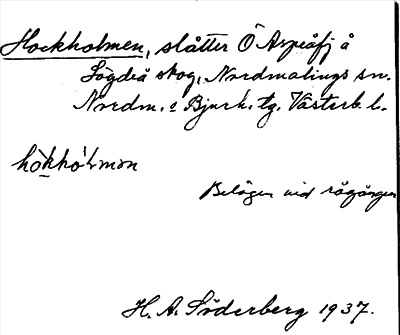 Hockholmen, slåtter Ö Aspeåfj å
Lögdeå skog, Nordmalings sn.
Nordm. o Bjurh. tg. Västerb. l.
hò̱khó́lmən
Belägen vid rågången
H. A. Söderberg 1937.